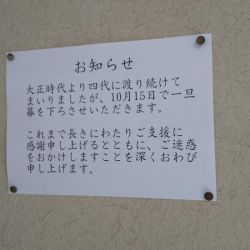 お知らせ
大正時代より四代に渡り続けて
まいりましたが、10月15日で一旦
幕を下ろさせていただきます。
これまで長きにわたりご支援に
感謝申し上げるとともに、ご迷惑
をおかけしますことを深くおわび
申し上げます。